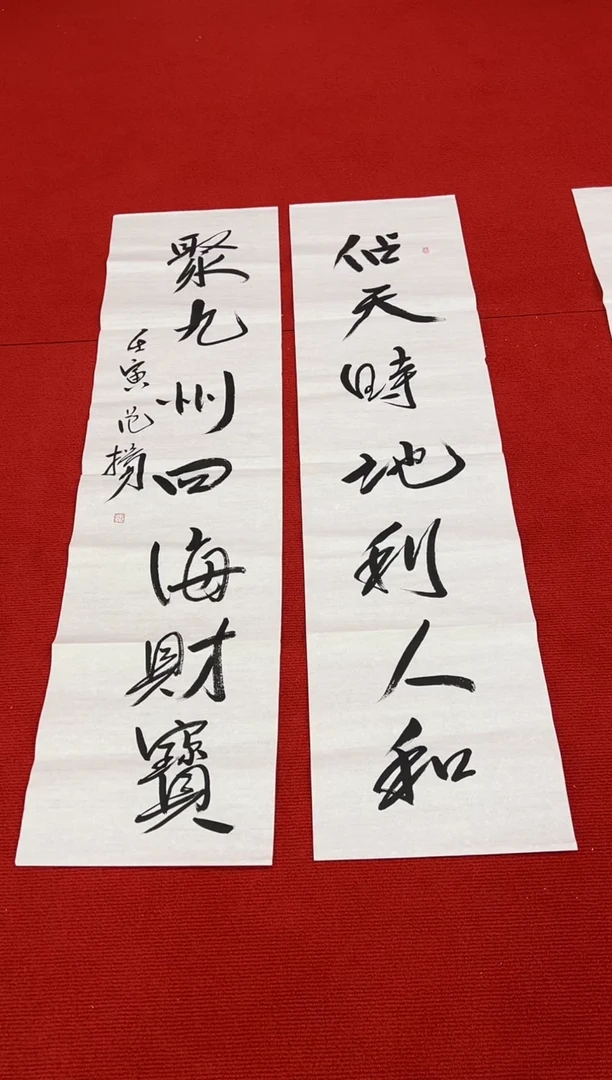 佔天時地利人和
聚九州四海財寶
壬寅范